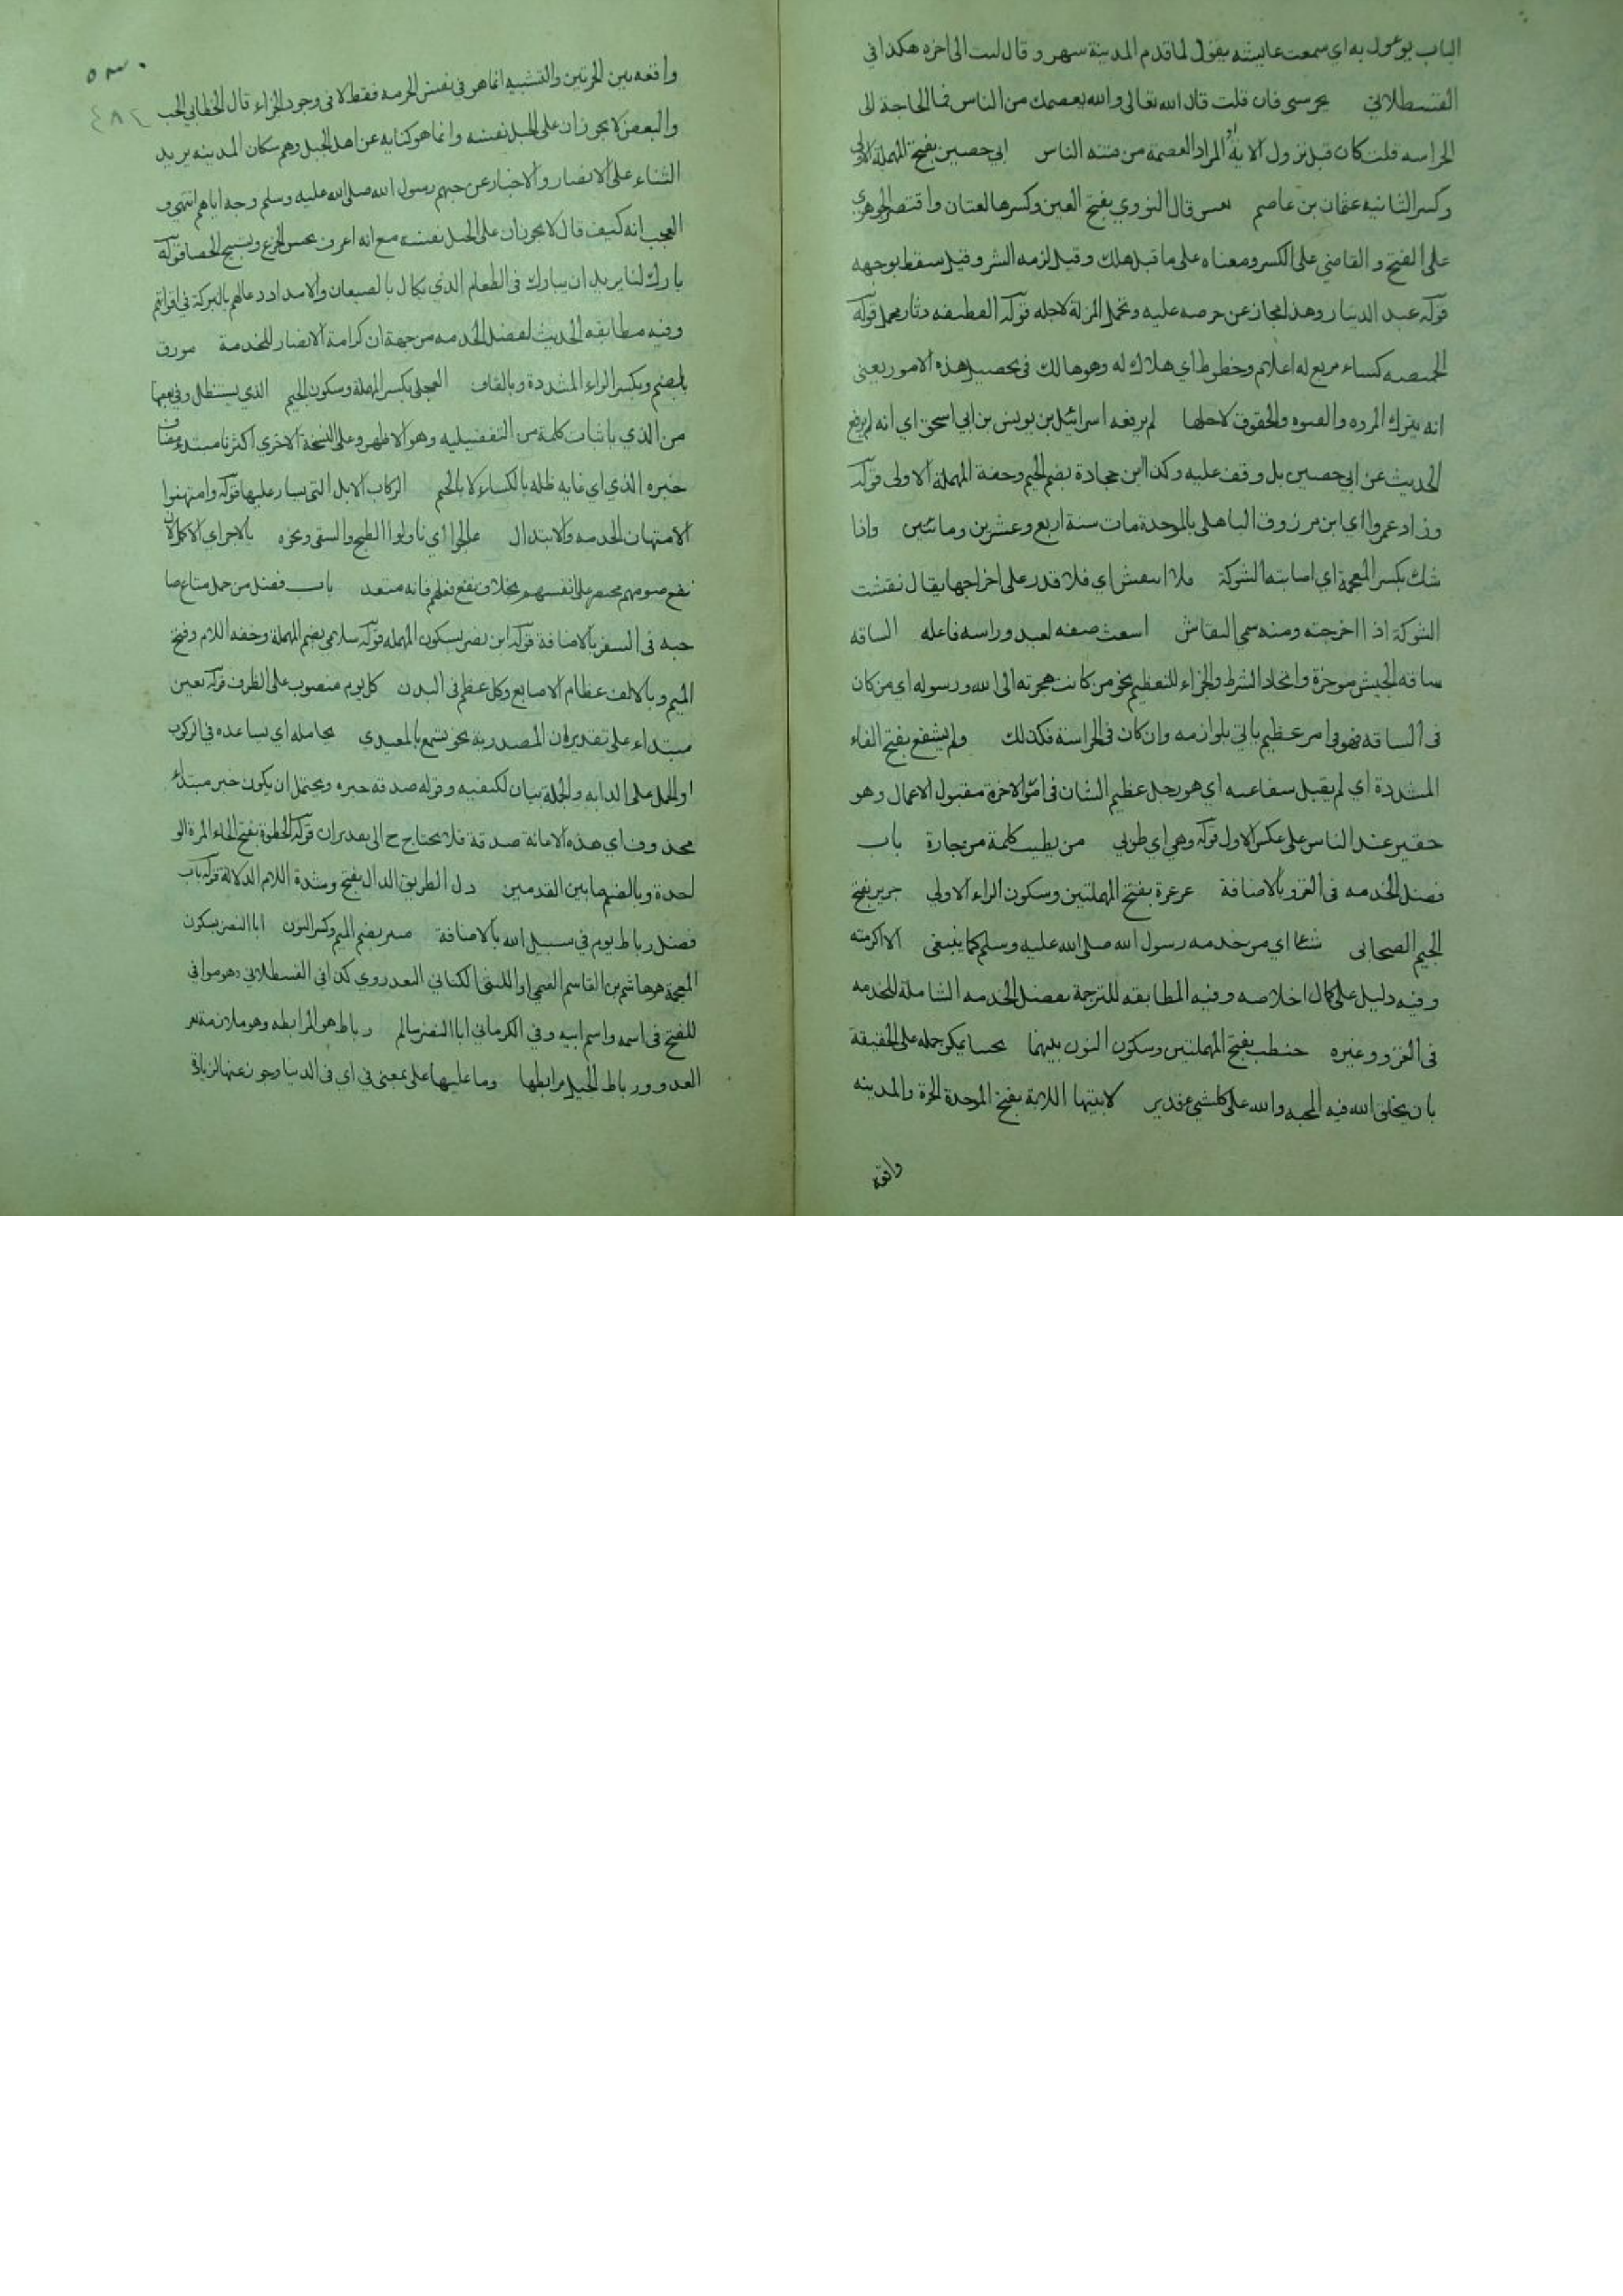 الباب يوعول به اي سمعت عايشه يقول لما قدم المدينة سهر و قال ليت الى اخره هكذا في
القسطلاني يحرسني فان قلت قال الله تعالى والله يعصمك من الناس فما الحاجة الى
الحراسه قلت كان قبل نزول الاية او المراد العصمة من فتنه الناس ابي حصين بفتح المهملة الاولى
وكسر الثانيه عثمان بن عاصم تعس قال النووي بفتح العين وكسرها لغتان واقتصر الجوهري
على الفتح و القاضي على الكسر ومعناه على ما قبل هلك وقيل لزمه الشر وقيل سقط بوجهه
قوله عبد الدينار وهذا مجاز عن حرصه عليه وتحمل المزلة لاجله قوله القطيفه دثار مخمل قوله
الخميصه كساء مربع له اعلام وخطوط اي هلاك له وهو هالك في تحصيل هذه الامور يعني
انه يترك المروه والفتوه والحقوق لاجلها لم يرفعه اسرائيل بن يونس بن ابي اسحق اي انه لم يرفع
الحديث عن ابي حصين بل وقف عليه وكذا ابن حجادة بضم الجيم وخفة المهملة الاولى قوله
وزاد عمرو اي ابن مرزوق الباهلي بالموحدة مات سنة اربع وعشرين ومائتين واذا
شاك بكسر المعجمة اي اصابته الشوكة فلا انتقش اي فلا قدر على اخراجها يقال نقشت
الشوكة اذا اخرجته ومنه سمي النقاش اشعث صفه لعبد وراسه فاعله الساقه
ساقه الجيش موخرة واتحاد الشرط والجزاء للتعظيم نحو من كانت هجرته الى الله ورسوله اي من كان
في الساقه فهو في امر عظيم ياتي بلوازمه وان كان في الحراسة فكذلك ولم يشفع بفتح الفاء
المشددة اي لم يقبل شفاعته اي هو رجل عظيم الشان في امر الاخرة مقبول الاعمال وهو
حقير عند الناس على عكس الاول قوله وهي اي طوبي من يطيب كلمة من بجارة باب
فضل الخدمه في الغزو بالاضافة عرعرة بفتح المهملتين وسكون الراء الاولي جرير بفتح
الجيم الصحابي شئا اي من خدمه رسول الله صلى الله عليه وسلم كما ينبغي الا اكرمته
وفيه دليل على كمال اخلاصه وفيه المطابقه للترجمة بفضل الخدمه الشاملة للخدمه
في الغزو وغيره حنطب بفتح المهملتين وسكون النون بينهما يحبنا يمكن حمله على الحقيقة
بان يخلق الله فيه المحبه والله على كل شي قدير لابتيها اللابة بفتح الموحدة الحرة والمدينه
واقعه
واقعه بين الحرتين والتشبيه انما هو في نفس الحرمه فقط لا في وجود الجزاء قال الخطابي الحب
والبغض لا يجوزان على الجبل نفسه وانما هو كنايه عن اهل الجبل وهم سكان المدينه يريد
الثناء على الانصار والاخبار عن حبهم رسول الله صلى الله عليه وسلم وحبه اياهم انتهى و
العجب انه كيف قال لا يجوزان على الجبل نفسه مع انه اعرف بحس الجزع وتسبيح الحصا قوله
بارك لنا يريد ان يبارك في الطعام الذي يكال بالصيعان والامداد دعا لهم بالبركة في اقواتهم
وفيه مطابقه الحديث لفضل الخدمه من جهة ان كرامة الانصار للخدمة مورق
بالضم وبكسر الراء المشددة وبالقاف العجلي بكسر المهملة وسكون الجيم الذي يستظل وفي بعضها
من الذي باثبات كلمة من التفضيليه وهو الاظهر وعلى النسخة الاخري اكثرنا مبتدء مضاف
خبره الذي اي غايه ظله بالكساء لا بالخيم الركاب الابل التي يسار عليها قوله وامتهنوا
الامتهان الخدمه والابتذال عالجوا اي ناولوا الطبخ والسقي ونحوه بالاجر اي الاكمل لان
نفع صومهم مختصر على انفسهم بخلاف نفع فعلهم فانه متعد باب فضل من حمل متاع صا
حبه في السفر بالاضافة قوله ابن نصر بسكون المهمله قوله سلامي بضم المهملة وخفه اللام وفتح
الميم وبالالف عظام الاصابع وكل عظم في البدن كل يوم منصوب على الظرف قوله تعين
مبتداء على تقدير ان المصدرية نحو تسمع بالمعيدي يحامله اي يساعده في الركوب
او الحمل على الدابه والجملة بيان لكيفيه وقوله صدقه خبره ويحتمل ان يكون خبر مبتداء
محذوف اي هذه الامانة صدقة فلا يحتاج ح الى تقدير ان قوله الخطوة بفتح الخاء المرة الو
احدة وبالضم ما بين القدمين دل الطريق الدال بفتح وشدة اللام الدلالة قوله باب
فضل رباط يوم في سبيل الله بالاضافة منير بضم الميم وكسر النون ابا النضر بسكون
المعجمة هو هاشم بن القاسم التميمي او الليثي الكناني البغدادي كذا في القسطلاني وهو موافق
للفتح في اسمه واسم ابيه وفي الكرماني ابا النضر سالم رباط هو المرابطه وهو ملازمة ثغر
العدو ورباط الخيل مرابطها وما عليها على بمعنى في اي في الدنيا وجوز عنها الزيادة
٤٨٢